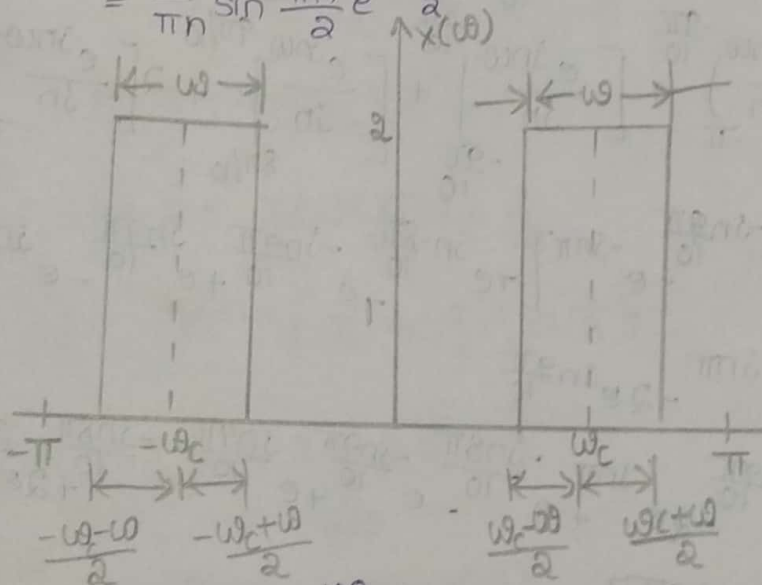 πn sin 2 e 2
X(ω)
ω ω
2
1
-π -ωc ωc π
-ωc-ω/2 -ωc+ω/2 ωc-ω/2 ωc+ω/2